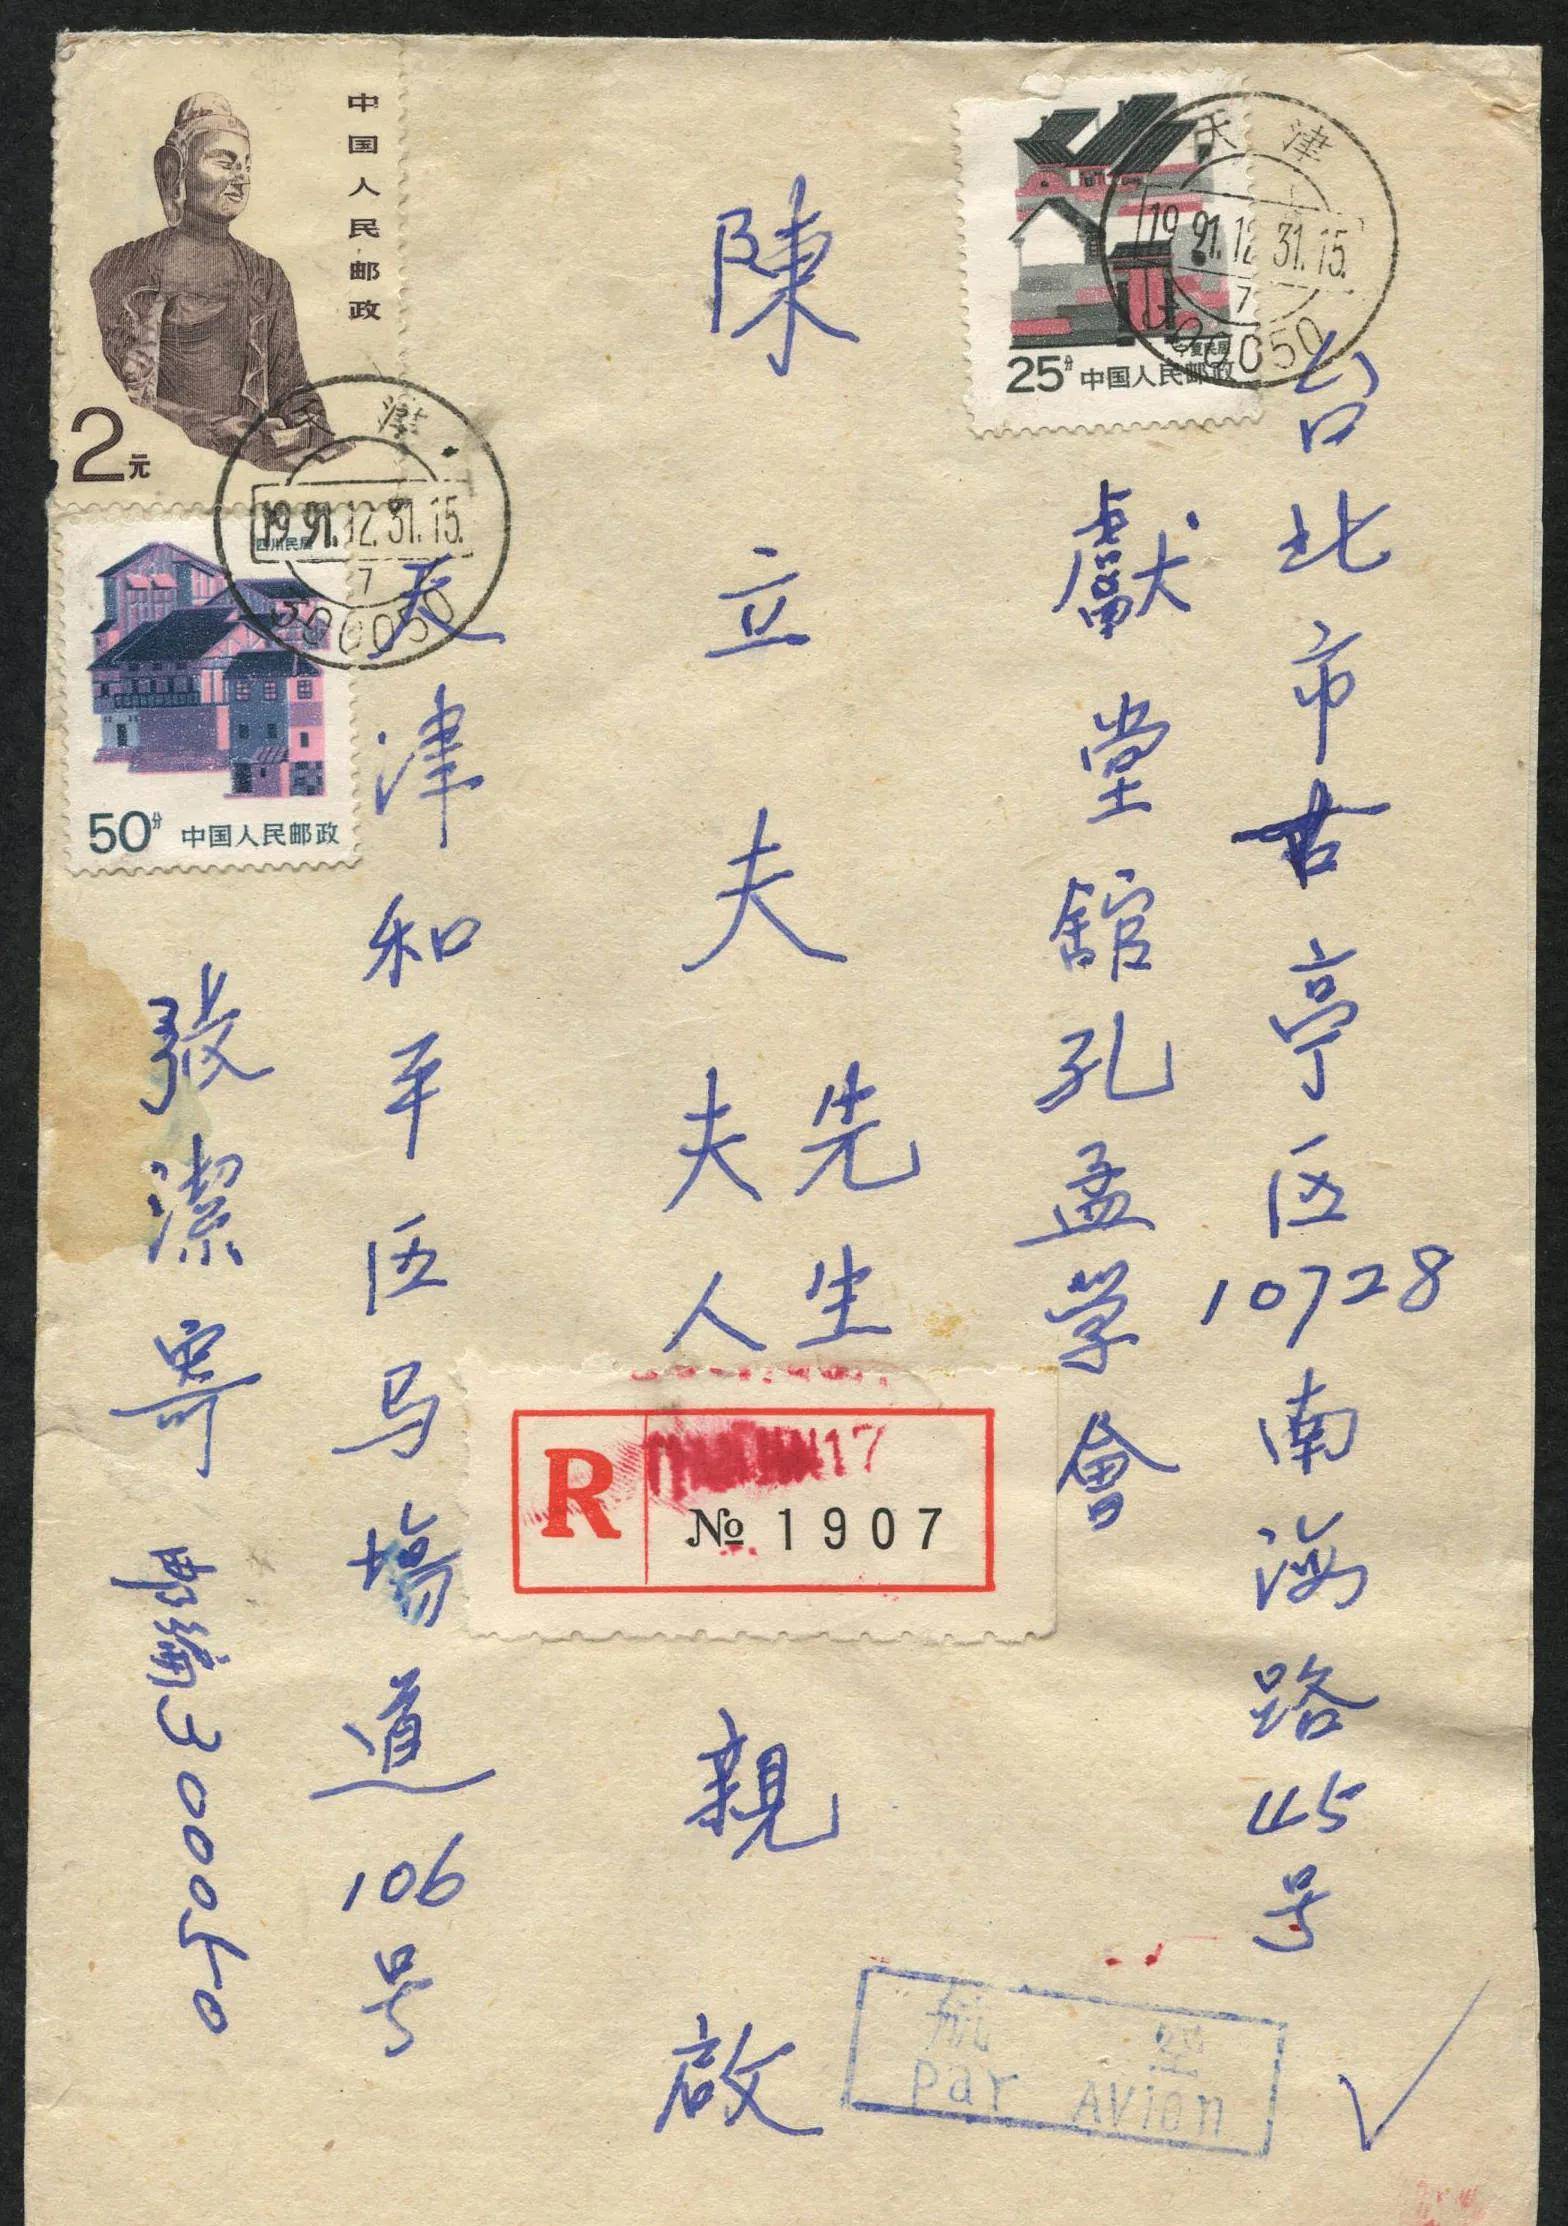 台北市古亭区10728南海路45号
獻堂館孔孟学會
陳立夫先生
夫人
親啟
天津和平区马場道106号
張潔寄 郵编300050
中国人民邮政
2元
四川民居
50分 中国人民邮政
宁夏民居
25分 中国人民邮政
天津
1991.12.31.15.
7
300050
天津
1991.12.31.15.
7
300050
R
17
№ 1907
航空
Par AVion